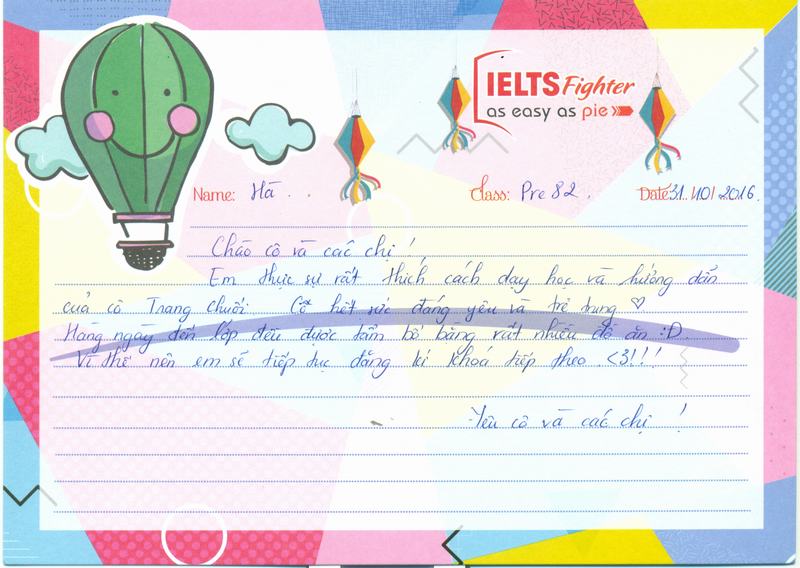 IELTS Fighter
as easy as pie
Name: Hà . . Class: Pre 82 . Date: 31 / 10 / 2016.
Chào cô và các chị !
Em thực sự rất thích cách dạy học và hướng dẫn
của cô Trang Chuối. Cô hết sức đáng yêu và trẻ trung ♡
Hàng ngày đến lớp đều được tẩm bổ bằng rất nhiều đồ ăn :D.
Vì thế nên em sẽ tiếp tục đăng kí khoá tiếp theo . <3!!!
Yêu cô và các chị !